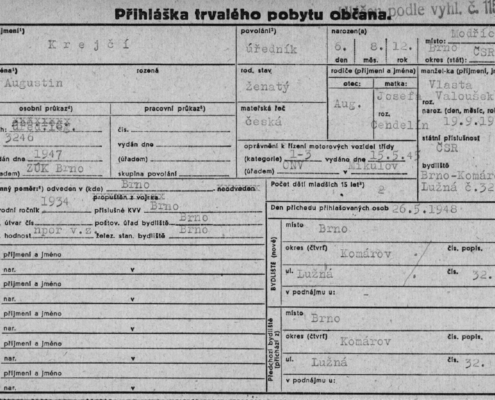 Přihláška trvalého pobytu občana.
podle vyhl. č.
jmení¹)
povolání³)
narozen(a)
místo:
Modřic
Krejčí
úředník
6. 8. 12.
Brno ČSR
den měs. rok
okres (stát):
rozená
rod. stav
rodiče (příjmení a jméno)
manžel-ka (příjmení, j
Augustin
ženatý
otec: matka:
Vlasta
Josefa
roz. Valoušek
osobní průkaz⁴)
pracovní průkaz⁵)
mateřská řeč
Aug.
Cendelín
naroz. (den, měsíc, ro
3246
čís.
česká
19.9.19
vydáno dne
oprávnění k řízení motorových vozidel třídy
státní příslušnost
dne 1947
(úřadem)
(kategorie) 1-3 vydáno dne 15.5.45
ČSR
ZÚK Brno
skupina povolání
(úřadem) ONV Mikulov
bydliště
Brno-Komáro
poměr⁶) odveden v (kde) Brno neodveden
Počet dětí mladších 15 let⁷)
2
Lužná č.32
propuštěn z vojska
vodní ročník 1934 příslušné KVV Brno
Den příchodu přihlašovaných osob 26.5.1948
útvar čís. poštov. úřad bydliště Brno
hodnost npor v.z. želez. stan. bydliště Brno
BYDLIŠTĚ (nové)
místo Brno
příjmení a jméno
okres (čtvrť) Komárov čís. popis.
nar. v
ul. Lužná čís. 32.
příjmení a jméno
v podnájmu u:
nar. v
příjmení a jméno
Předchozí bydliště (přichází z)
místo Brno
nar. v
okres (čtvrť) Komárov čís. popis.
příjmení a jméno
nar. v
ul. Lužná čís. 32.
příjmení a jméno
v podnájmu u:
nar. v